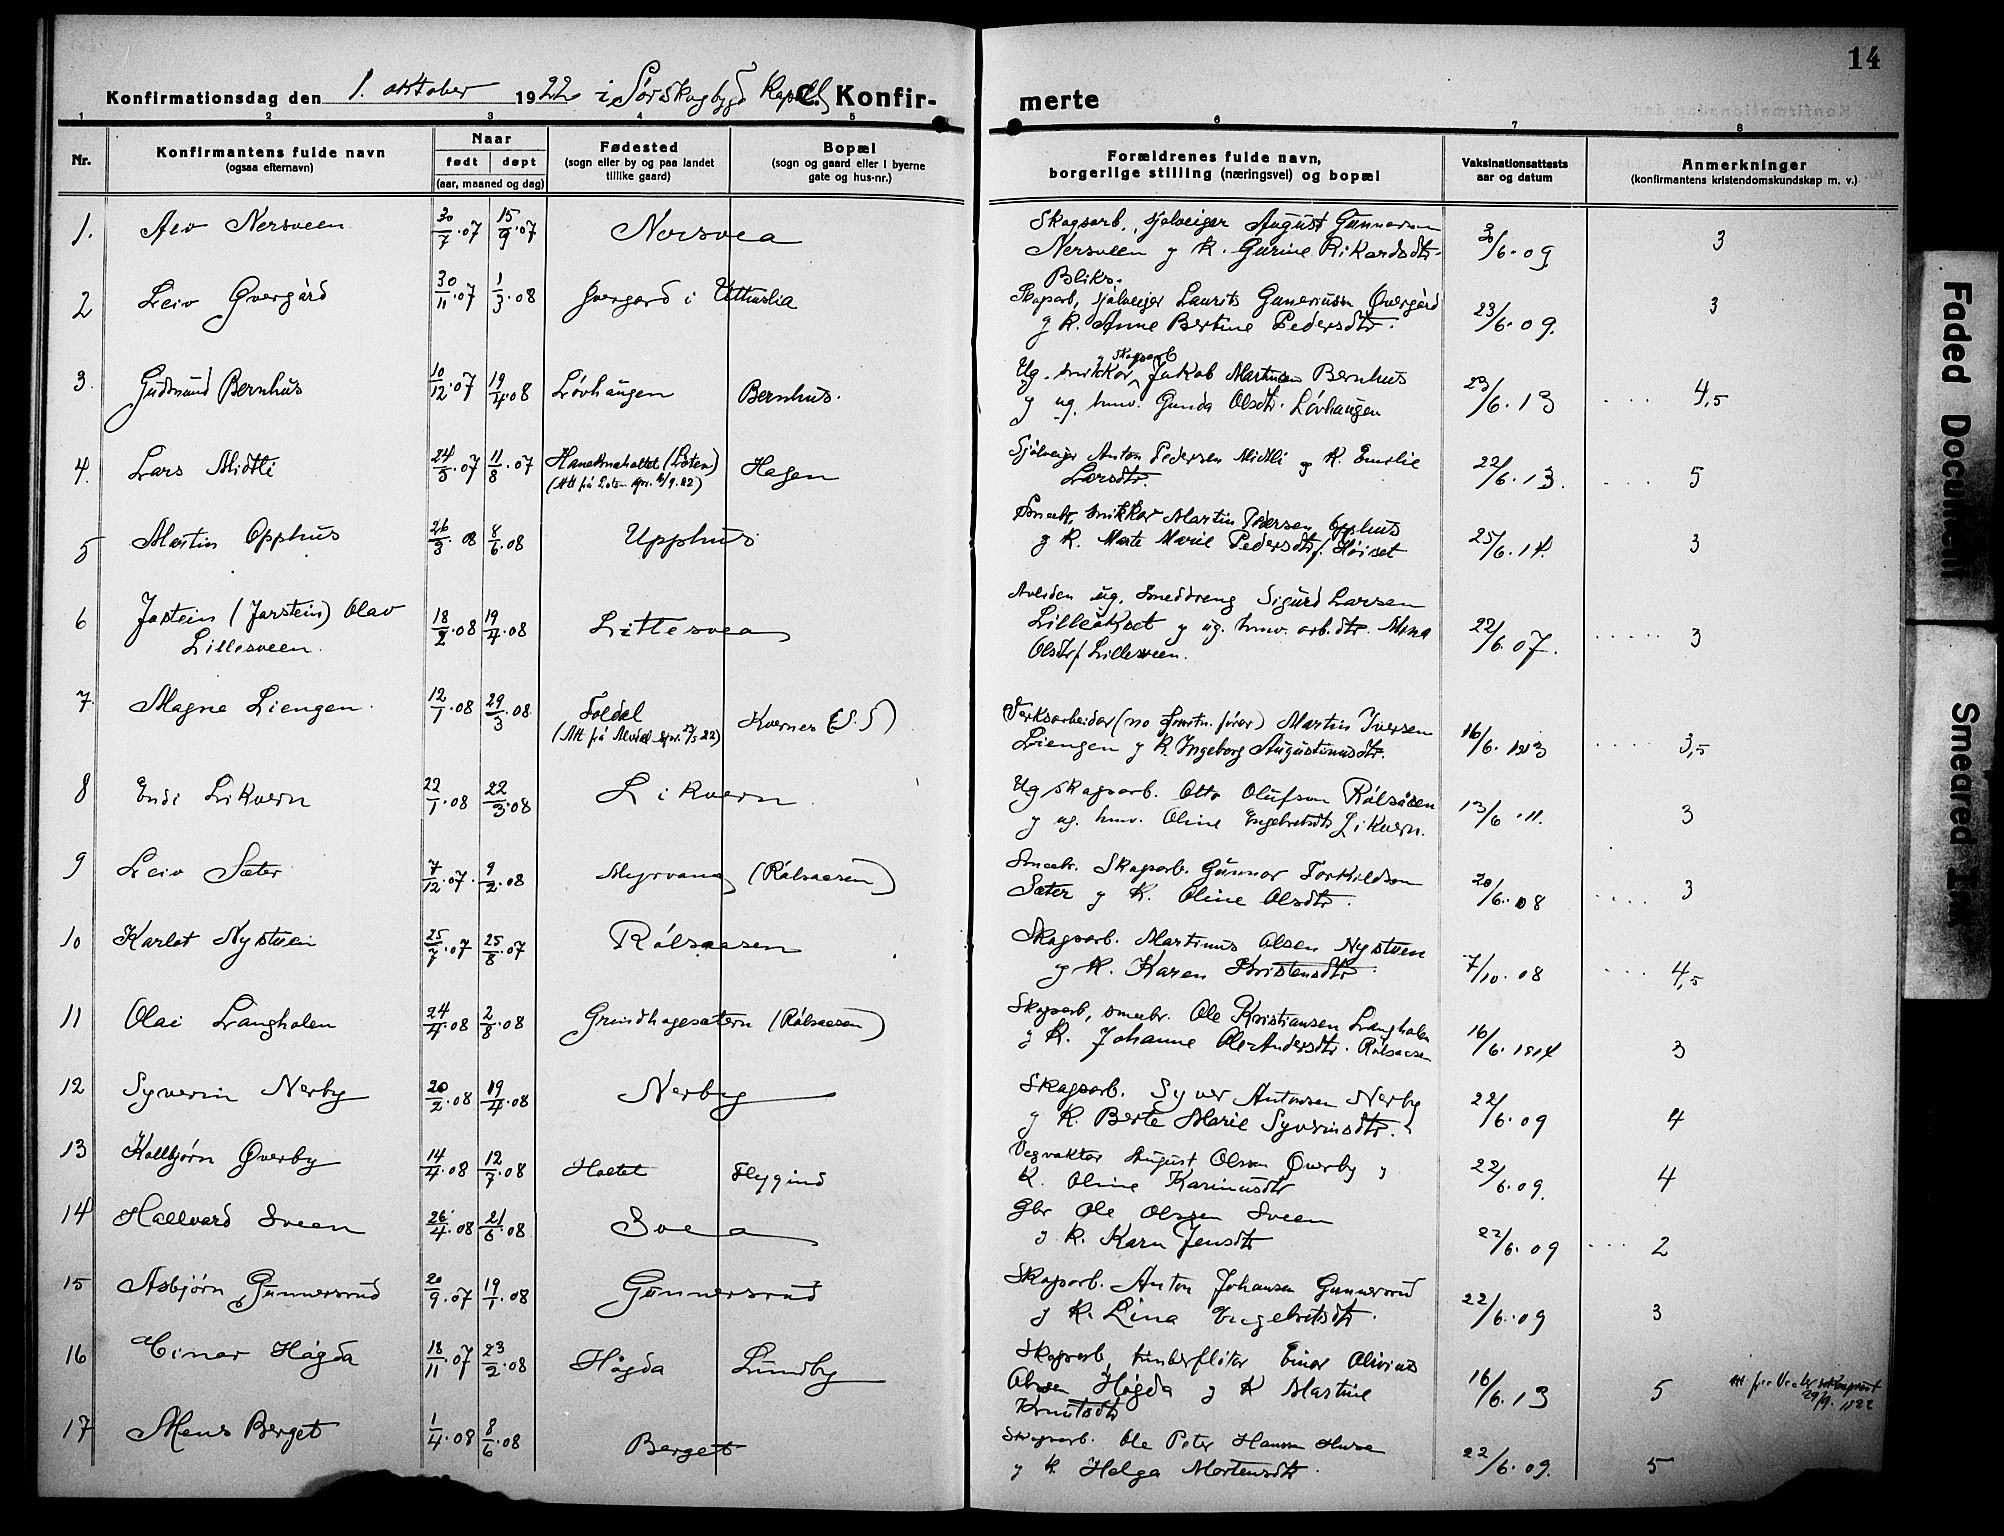 14
Konfirmationsdag den 1. oktober 1922 i Sørskogbygd Kapell Konfirmerte
1 2 3 4 5 6 7 8
Nr. Konfirmantens fulde navn (ogsaa efternavn) Naar født døpt (aar, maaned og dag) Fødested (sogn eller by og paa landet tillike gaard) Bopæl (sogn og gaard eller i byerne gate og hus-nr.) Forældrenes fulde navn, borgerlige stilling (næringsvei) og bopæl Vaksinationsattests aar og datum Anmerkninger (konfirmantens kristendomskundskap m. v.)
1. Alv Nersveen 30/7.07 15/9.07 Norsvea Skogsarb., sjølveiger August Gunnarsen 30/6.09 3
Nersveen og k. Gurine Rikardsdtr.
Bliks.
2 Leiv Øvergård 30/11.07 1/3.08 Øvergard i Uthuslia Skogsarb, sjølveiger Laurits Gunerius Øvergård 23/6.09. 3
og k. Anne Bertine Pedersdtr.
3. Gudmund Bernhus 10/12.07 19/4.08 Løvhaugen Bernhus. Ug. snikkar og skogsarb Jakob Martinsen Bernhus 23/6.13 .... 4,5
og ug. hmv. Gunda Olsdtr. Løvhaugen
4. Lars Midtli 24/5.07 11/8.07 (Løten) Hagen Sjølveiger Anton Pedersen Midtli og k. Emilie 22/6.13. .... 5
Larsdtr.
5 Martin Opphus 26/3.08 8/6.08 Upphus Smaabr, snikkar Martin Pedersen Opphus 25/6.14. 3
og k. Marte Marie Pedersdtr. f. Høiset
6 Jostein (Jarstein) Olav 18/2.08 19/4.08 Littesvea Avliden ug. smeddreng Sigurd Larsen 22/6.07. ..... 3
Lillesveen. Lilleåkset og ug. hmv. arb.dtr. Mina
Olsdtr f Lillesveen.
7 Magne Liengen. 12/1.08 29/3.08 Foldal Kvernes (S.S) Verksarbeidar (no førar) Martin Iversen 16/6.1913 .... 3,5
(Att frå Alvdal spr. 27/5 22) Liengen og k. Ingeborg Augustinusdtr.
8 Endi Likvern 22/1.08 22/3.08 Likvern Ug skogsarb. Otto Olufsen Rålsåsen 13/6.11. 3
og ug. hmv. Oline Engebretsdtr Likvern.
9 Leiv Sæter 7/12.07. 9/2.08 Myrvang (Rålsaasen) Smaabr. Skogsarb. Gunnar Torkildsen 20/6.08 .... 3
Sæter og k. Oline Olsdtr.
10 Karlot Nystuen 25/7.07 25/8.07 Rålsaasen Skogsarb. Martinus Olsen Nystuen 7/10.08 .... 4,5
og k. Karen Kristensdtr.
11 Olai Langholen 24/4.08 2/8.08 Grindhagesætern (Rålsaasen) Skogsarb, smaabr. Ole Kristiansen Langholen 16/6.1914 3
og k. Johanne Ole-Andersdtr. Rålsaasen
12 Syverin Nerby 20/2.08 19/4.08 Nerby Skogsarb. Syver Antonsen Nerby 22/6.09 4
og k. Berte Marie Syverinsdtr.
13 Kolbjørn Øverby 14/4.08 12/7.08 Holtet Flygind Vegvaktar August Olsen Øverby og 22/6.09. 4
k. Oline Karinusdtr
14 Hallvard Sveen 26/4.08 21/6.08 Svea Gbr Ole Olssen Sveen 22/6.09 .... 2
og k. Karn Jensdtr
15 Asbjørn Gunnersrud 20/9.07 19/1.08 Gunnersrud Skogsarb. Anton Johansen Gunnersrud 22/6.09 3
og k. Lina Engebretsdtr.
16 Einar Høgda 18/11.07 23/2.08 Høgda Lundby Skogsarb, tømberfløtar Einar Olivius 16/6.13 5 Att frå 29/9. 1922
Olsen Høgda og k Martine
Knutsdtr
17 Mens Berget 1/4.08 8/6.08 Berget Skogsarb. Ole Peter Hansen 22/6.09. 5
og k Helga Mortensdtr.
Faded Document
Smeared Ink